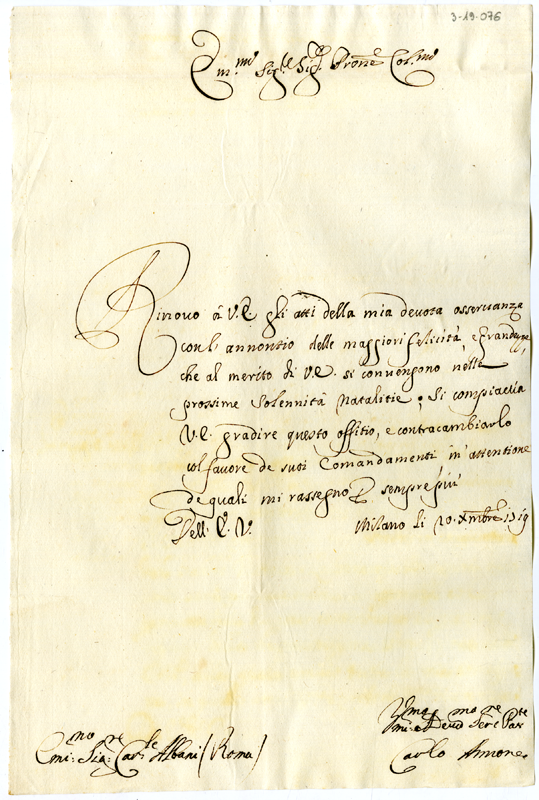 3-19-076
Em.mo Sig.re Sig.re Prone Col.mo
Rinovo à V.E. gli atti della mia devota osservanza
con l'annontio delle maggiori felicità, e grandezze,
che al merito di V.E. si convengono nelle
prossime solennità Natalitie; si compiaccia
V.E. gradire questo offitio, e contracambiarlo
col favore de suoi Comandamenti in attentione
de quali mi rassegno p sempre più
Dell' E. V.
Milano li 20. Xmbre 1719
Emi:no Sig:re Car.le Albani (Roma)
Hmo Devmo Ser.re Par.te
Carlo Annone